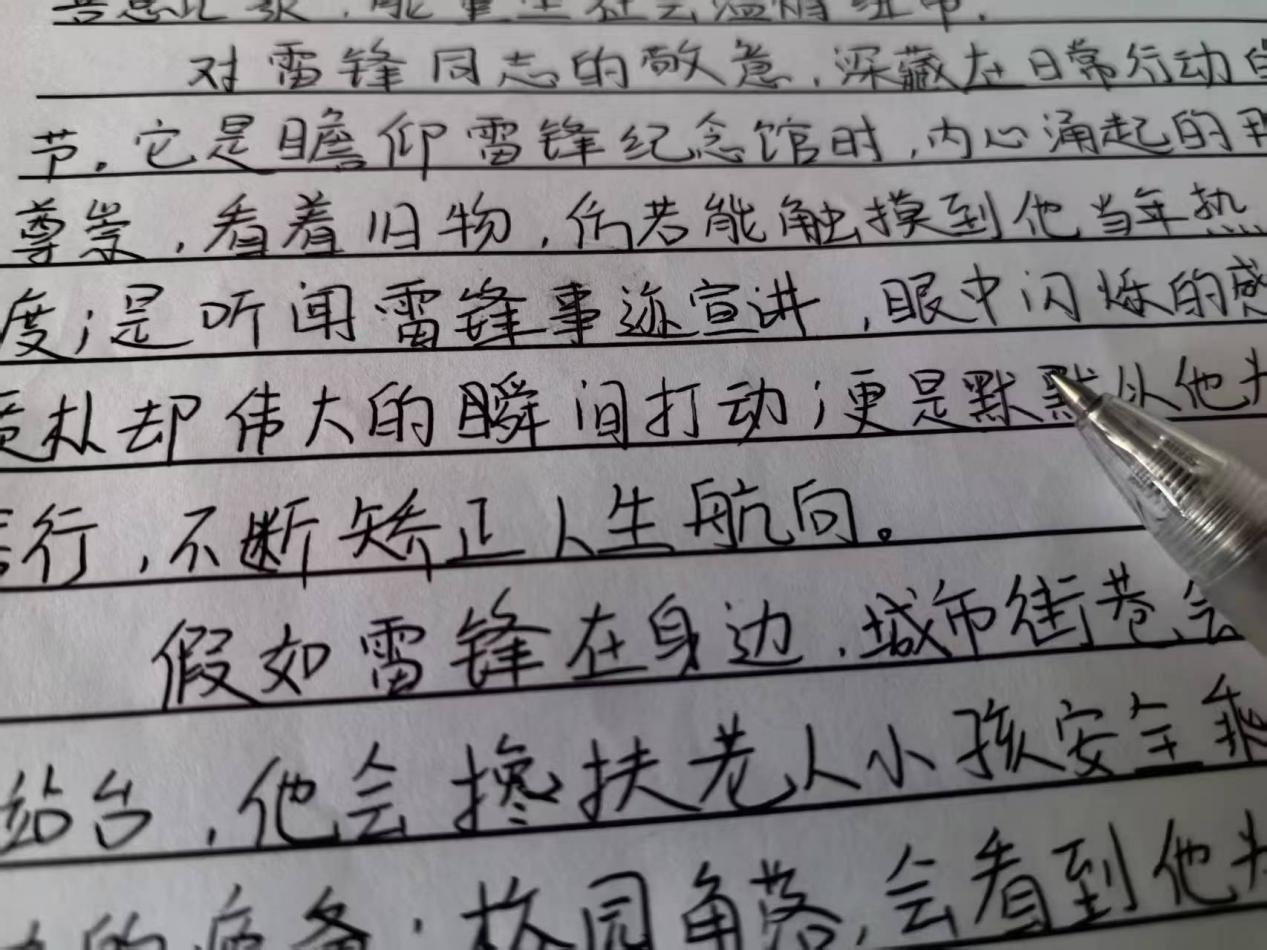 对雷锋同志的敬意,深藏在日常行动的
节。它是瞻仰雷锋纪念馆时,内心涌起的
尊崇,看着旧物,仿若能触摸到他当年热
度;是听闻雷锋事迹宣讲,眼中闪烁的感
质朴却伟大的瞬间打动;更是默默从他
言行,不断矫正人生航向。
假如雷锋在身边,城市街巷会
站台,他会搀扶老人小孩安全乘
的疲惫;校园角落,会看到他